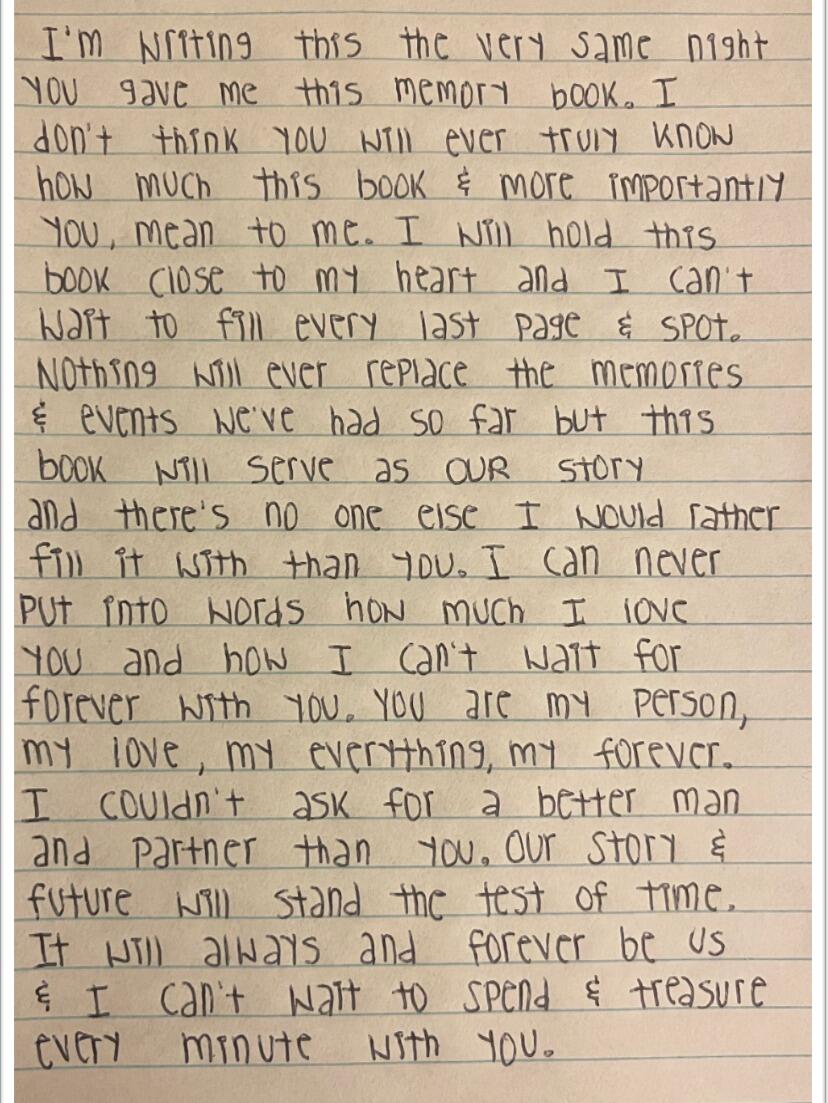 I'm writing this the very same night
you gave me this memory book. I
don't think you will ever truly know
how much this book & more importantly
you, mean to me. I will hold this
book close to my heart and I can't
wait to fill every last page & spot.
Nothing will ever replace the memories
& events we've had so far but this
book will serve as OUR story
and there's no one else I would rather
fill it with than you. I can never
put into words how much I love
you and how I can't wait for
forever with you. You are my person,
my love, my everything, my forever.
I couldn't ask for a better man
and partner than you. Our story &
future will stand the test of time.
It will always and forever be us
& I can't wait to spend & treasure
every minute with you.